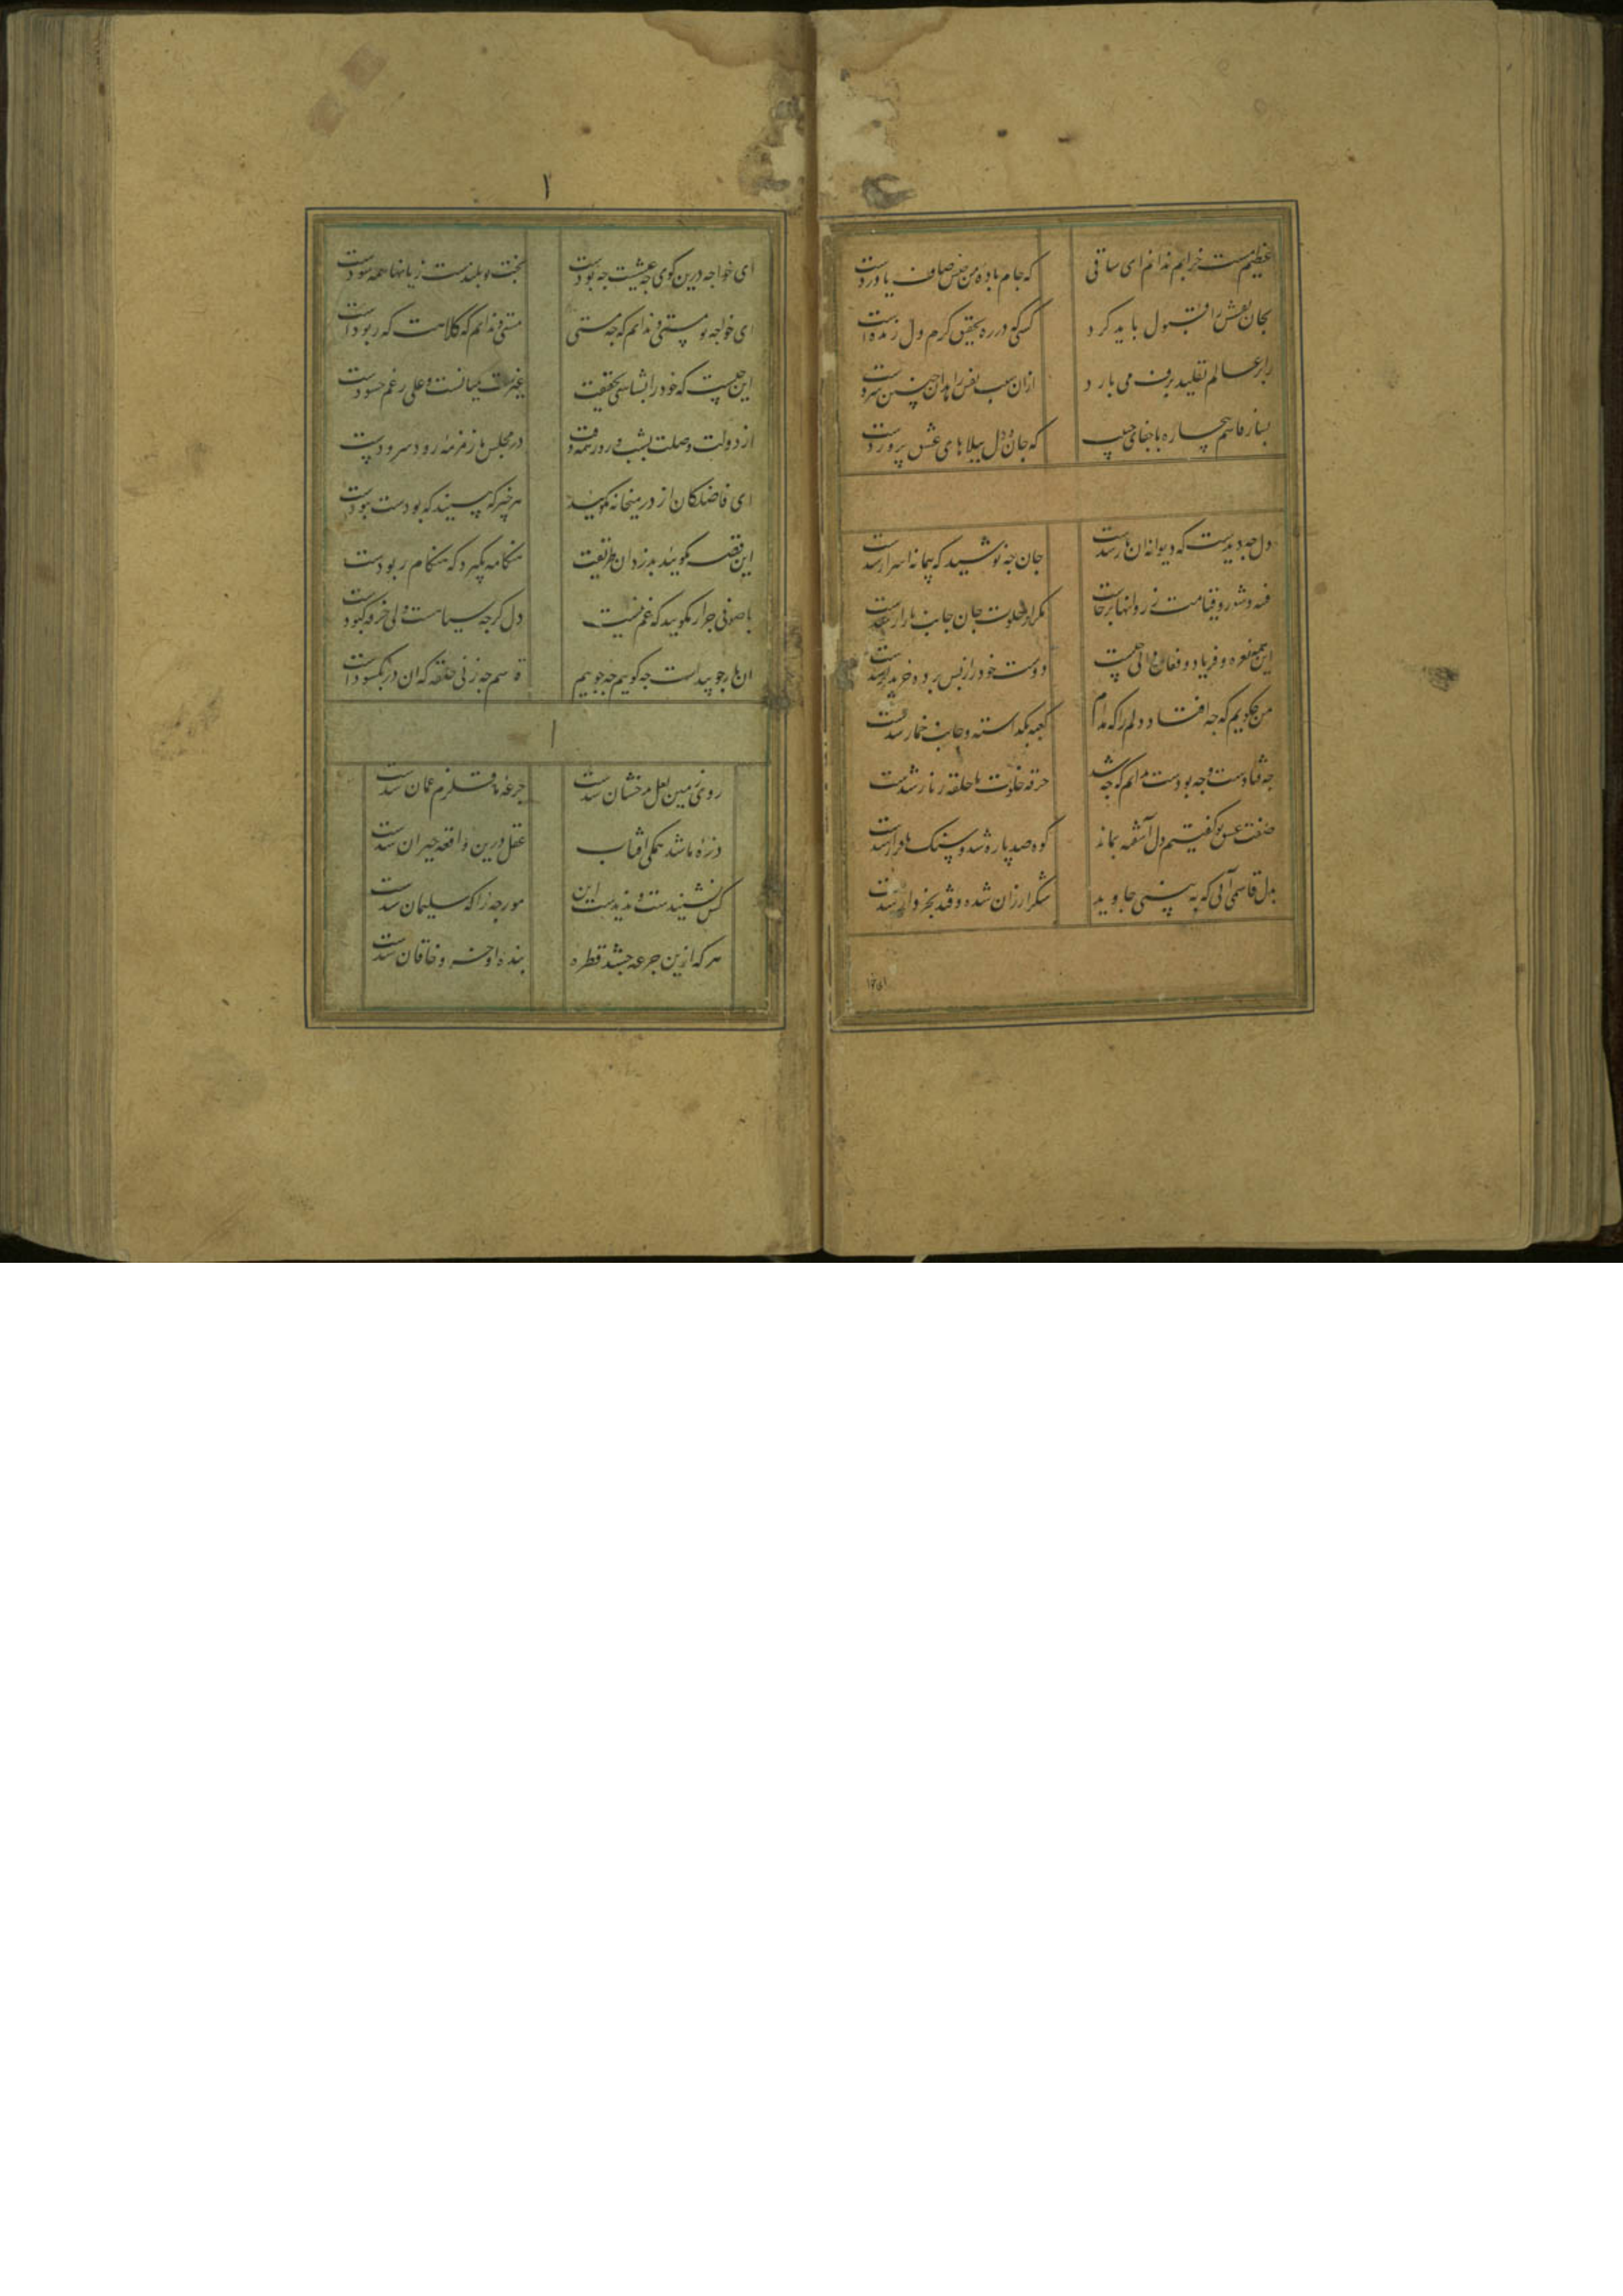 عظیم مست خرابم ندانم ای ساقی که جام باده من جنس صاف یا دردست
بجان نعش را قبول باید کرد کسی که در ره تحقیق کرم دل زنده است
زابر عالم تقلید برف می بارد ازان سبب نفس زاهدان چنین سردست
بساز قاسم بیچاره با جفای حبیب که جان و دل ببلاهای عشق پروردست
دل چه دیدست که دیوانه آن یار شدست جان چه نوشید که پیمانه اسرار شدست
فتنه و شور و قیامت ز روانها برخاست مکر از خلوت جان جانب بازار شدست
این همه نعره و فریاد و فغان دانی چیست دوست خود را ز پس پرده خریدار شدست
من چکویم که چه افتاد دلم را که مدام کعبه بکذاشته و جانب خمار شدست
چه فتادست و چه بودست ندانم که چه شد خرقه خلوت ما حلقه زنار شدست
صفت عشق تو کفتیم دل آشفته بماند کوه صد پاره شد و سنک بهوار شدست
دل قاسمی آنی که ببینی جاوید شکر ارزان شده و قند بخروار شدست
ای خواجه
۱
ای خواجه درین کوی چه عیشت چه بودست بختت چو بلندست زیانها همه سودست
ای خواجه تو مستی و ندانم که چه مستی مستی و ندانم که کلاهت که ربودست
این چیست که خود را بشناسی بحقیقت غیرت بمیانست و علی رغم حسودست
از دولت وصلت بشب و روز همه وقت در مجلس ما زمزمه رود و سرودست
ای فاضلکان از در میخانه مکویید هر چیز که بینید که بودست نبودست
این قصه مکویید بدزدان طریقت هنکامه مکیرد که هنکام ربودست
با صوفی جرار مکویید که غم نیست دل کرچه سیاهست ولی خرقه کبودست
آن یار چو پیداست چه کوییم چه جوییم قاسم چه زنی حلقه که آن در بکشودست
۱
روی زمین لعل بدخشان شدست جرعه ما قلزم عمان شدست
ذره ما شد همکی افتاب عقل درین واقعه حیران شدست
کس نشنیدست و ندیدست این مورچه را که سلیمان شدست
هر که ازین جرعه چشد قطره بنده او خسرو و خاقان شدست